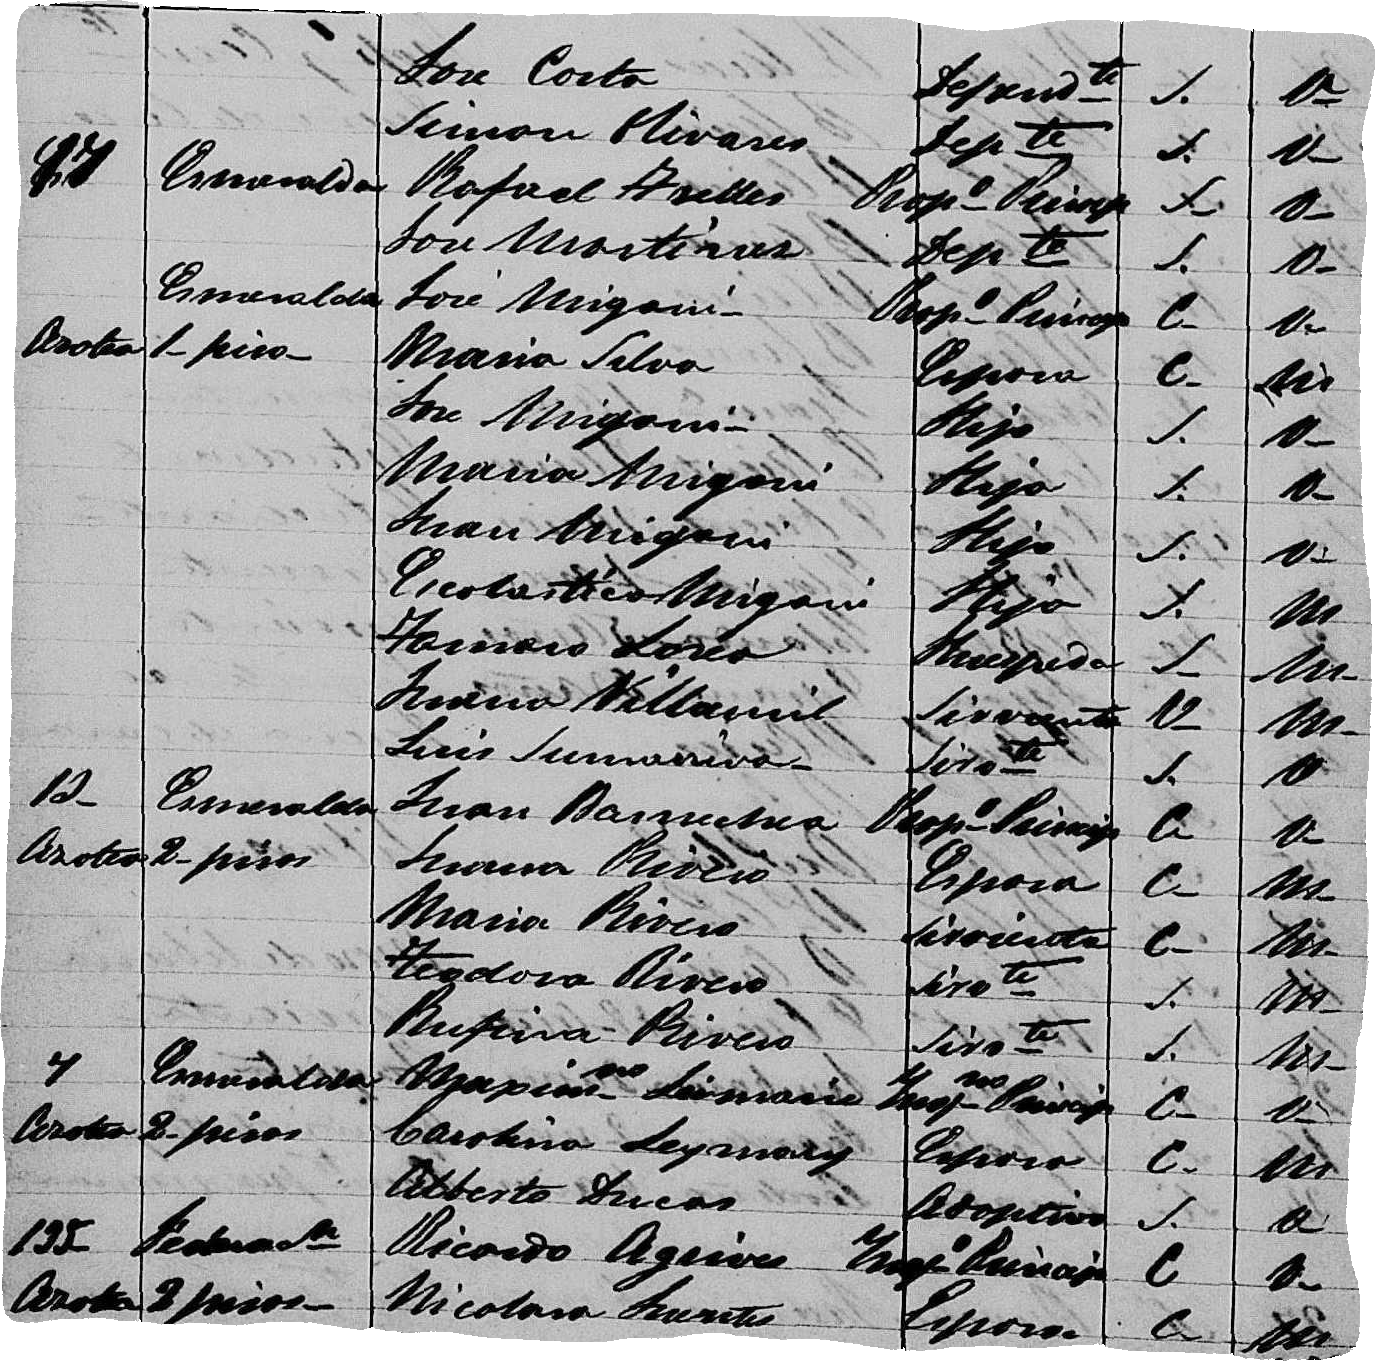 Jose Costa Depend.te S. V-
Simon Olivares Dep te S. V-
27 Esmeralda Rafael Prop.o Princip S- V-
Jose Martinez Dep te S. V-
Esmeralda José Migoni- Prop.o Princip C- V-
Azotea 1- piso- Maria Silva Esposa C- M
Jose Migoni- Hijo S. V-
Maria Migoni Hija S. V-
Juan Migoni Hijo S. V-
Escolastica Migoni Hija S. M
Huespeda S- M-
Juana Villamil Sirvienta V- M-
Luis Sumariva- Sirv te S. V
12- Esmeralda Juan Barnechea Prop.o Princip C- V-
Azotea 2- pisos Juana Rivero Esposa C- M-
Maria Rivero Sirvienta C- M-
Teodora Rivero Sirv te S. M-
Rufina Rivero Sirv te S. M-
7 Esmeralda Maxim.no Inq.no Princip C- V-
Azotea 2- pisos Carolina Leymary Esposa C. M
Alberto Ducas Adoptivo S. V
135 Ricardo Aguirre Inq.o Princip C V-
Azotea 2 pisos- Nicolasa Fuentes Esposa C- M